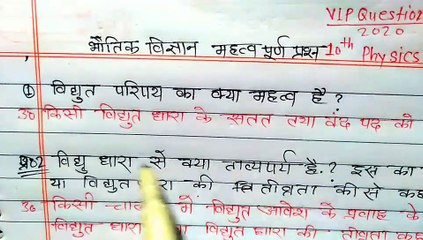 VIP Question
2020
भौतिक विज्ञान महत्वपूर्ण प्रश्न 10th Physics
① विद्युत परिपथ का क्या महत्व है ?
उ० किसी विद्युत धारा के सतत तथा बंद पथ को
प्र०2 विद्यु धारा से क्या तात्पर्य है.? इस का
या विद्युत की तीव्रता की से कह
उ० किसी में विद्युत आवेश के प्रवाह के
विद्युत धारा या विद्युत धारा की तीव्रता कह